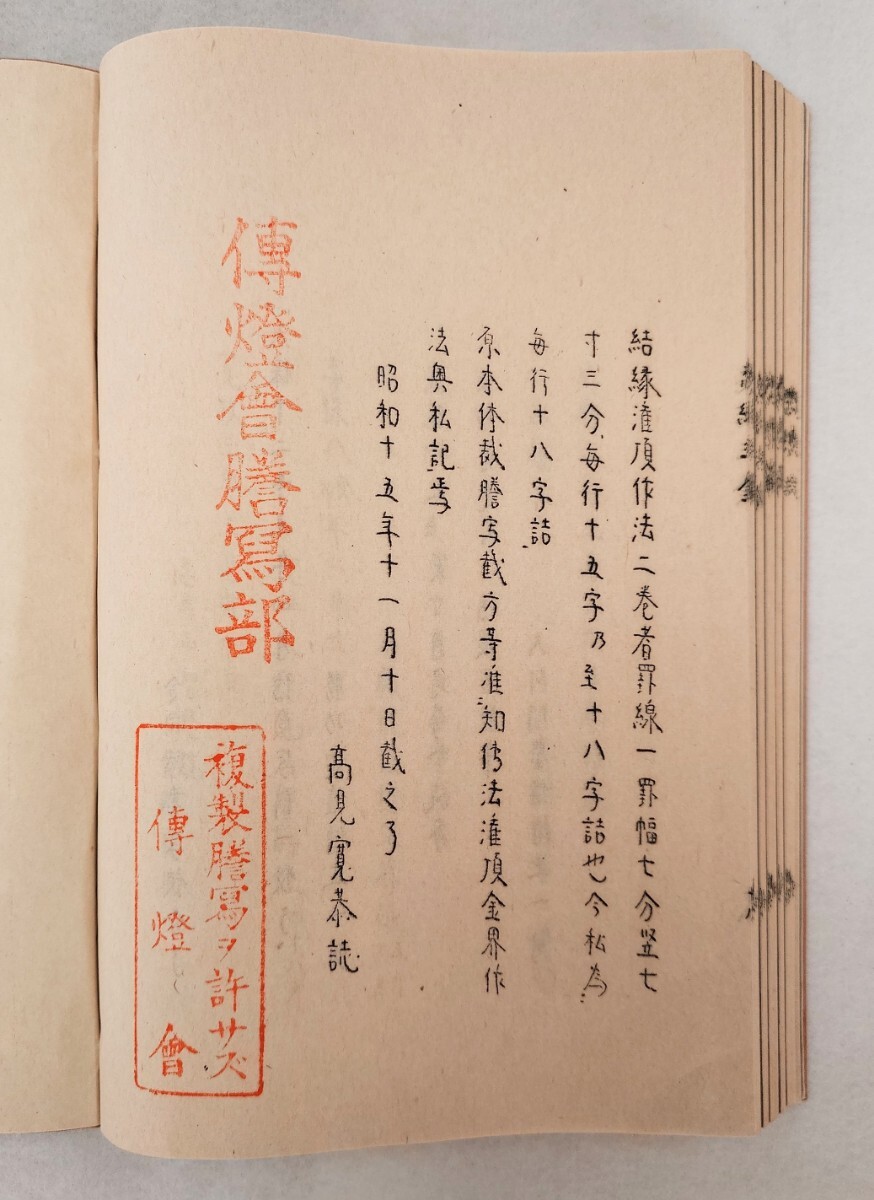 結縁潅頂作法二巻者罫線一罫幅七分竪七
寸三分、毎行十五字乃至十八字詰也今私為
毎行十八字詰
原本体裁謄写截方等准知伝法潅頂金界作
法奥私記焉
昭和十五年十一月十日截之了
高見寛恭誌
傳燈會謄寫部
複製謄寫ヲ許サズ
傳燈會